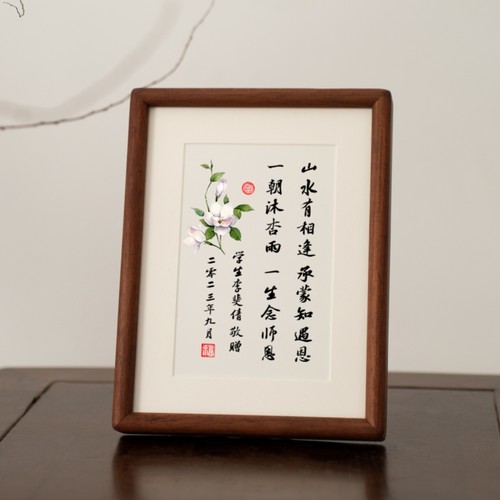 山水有相逢 承蒙知遇恩
一朝沐杏雨 一生念师恩
学生李斐倩敬赠
二零二三年九月